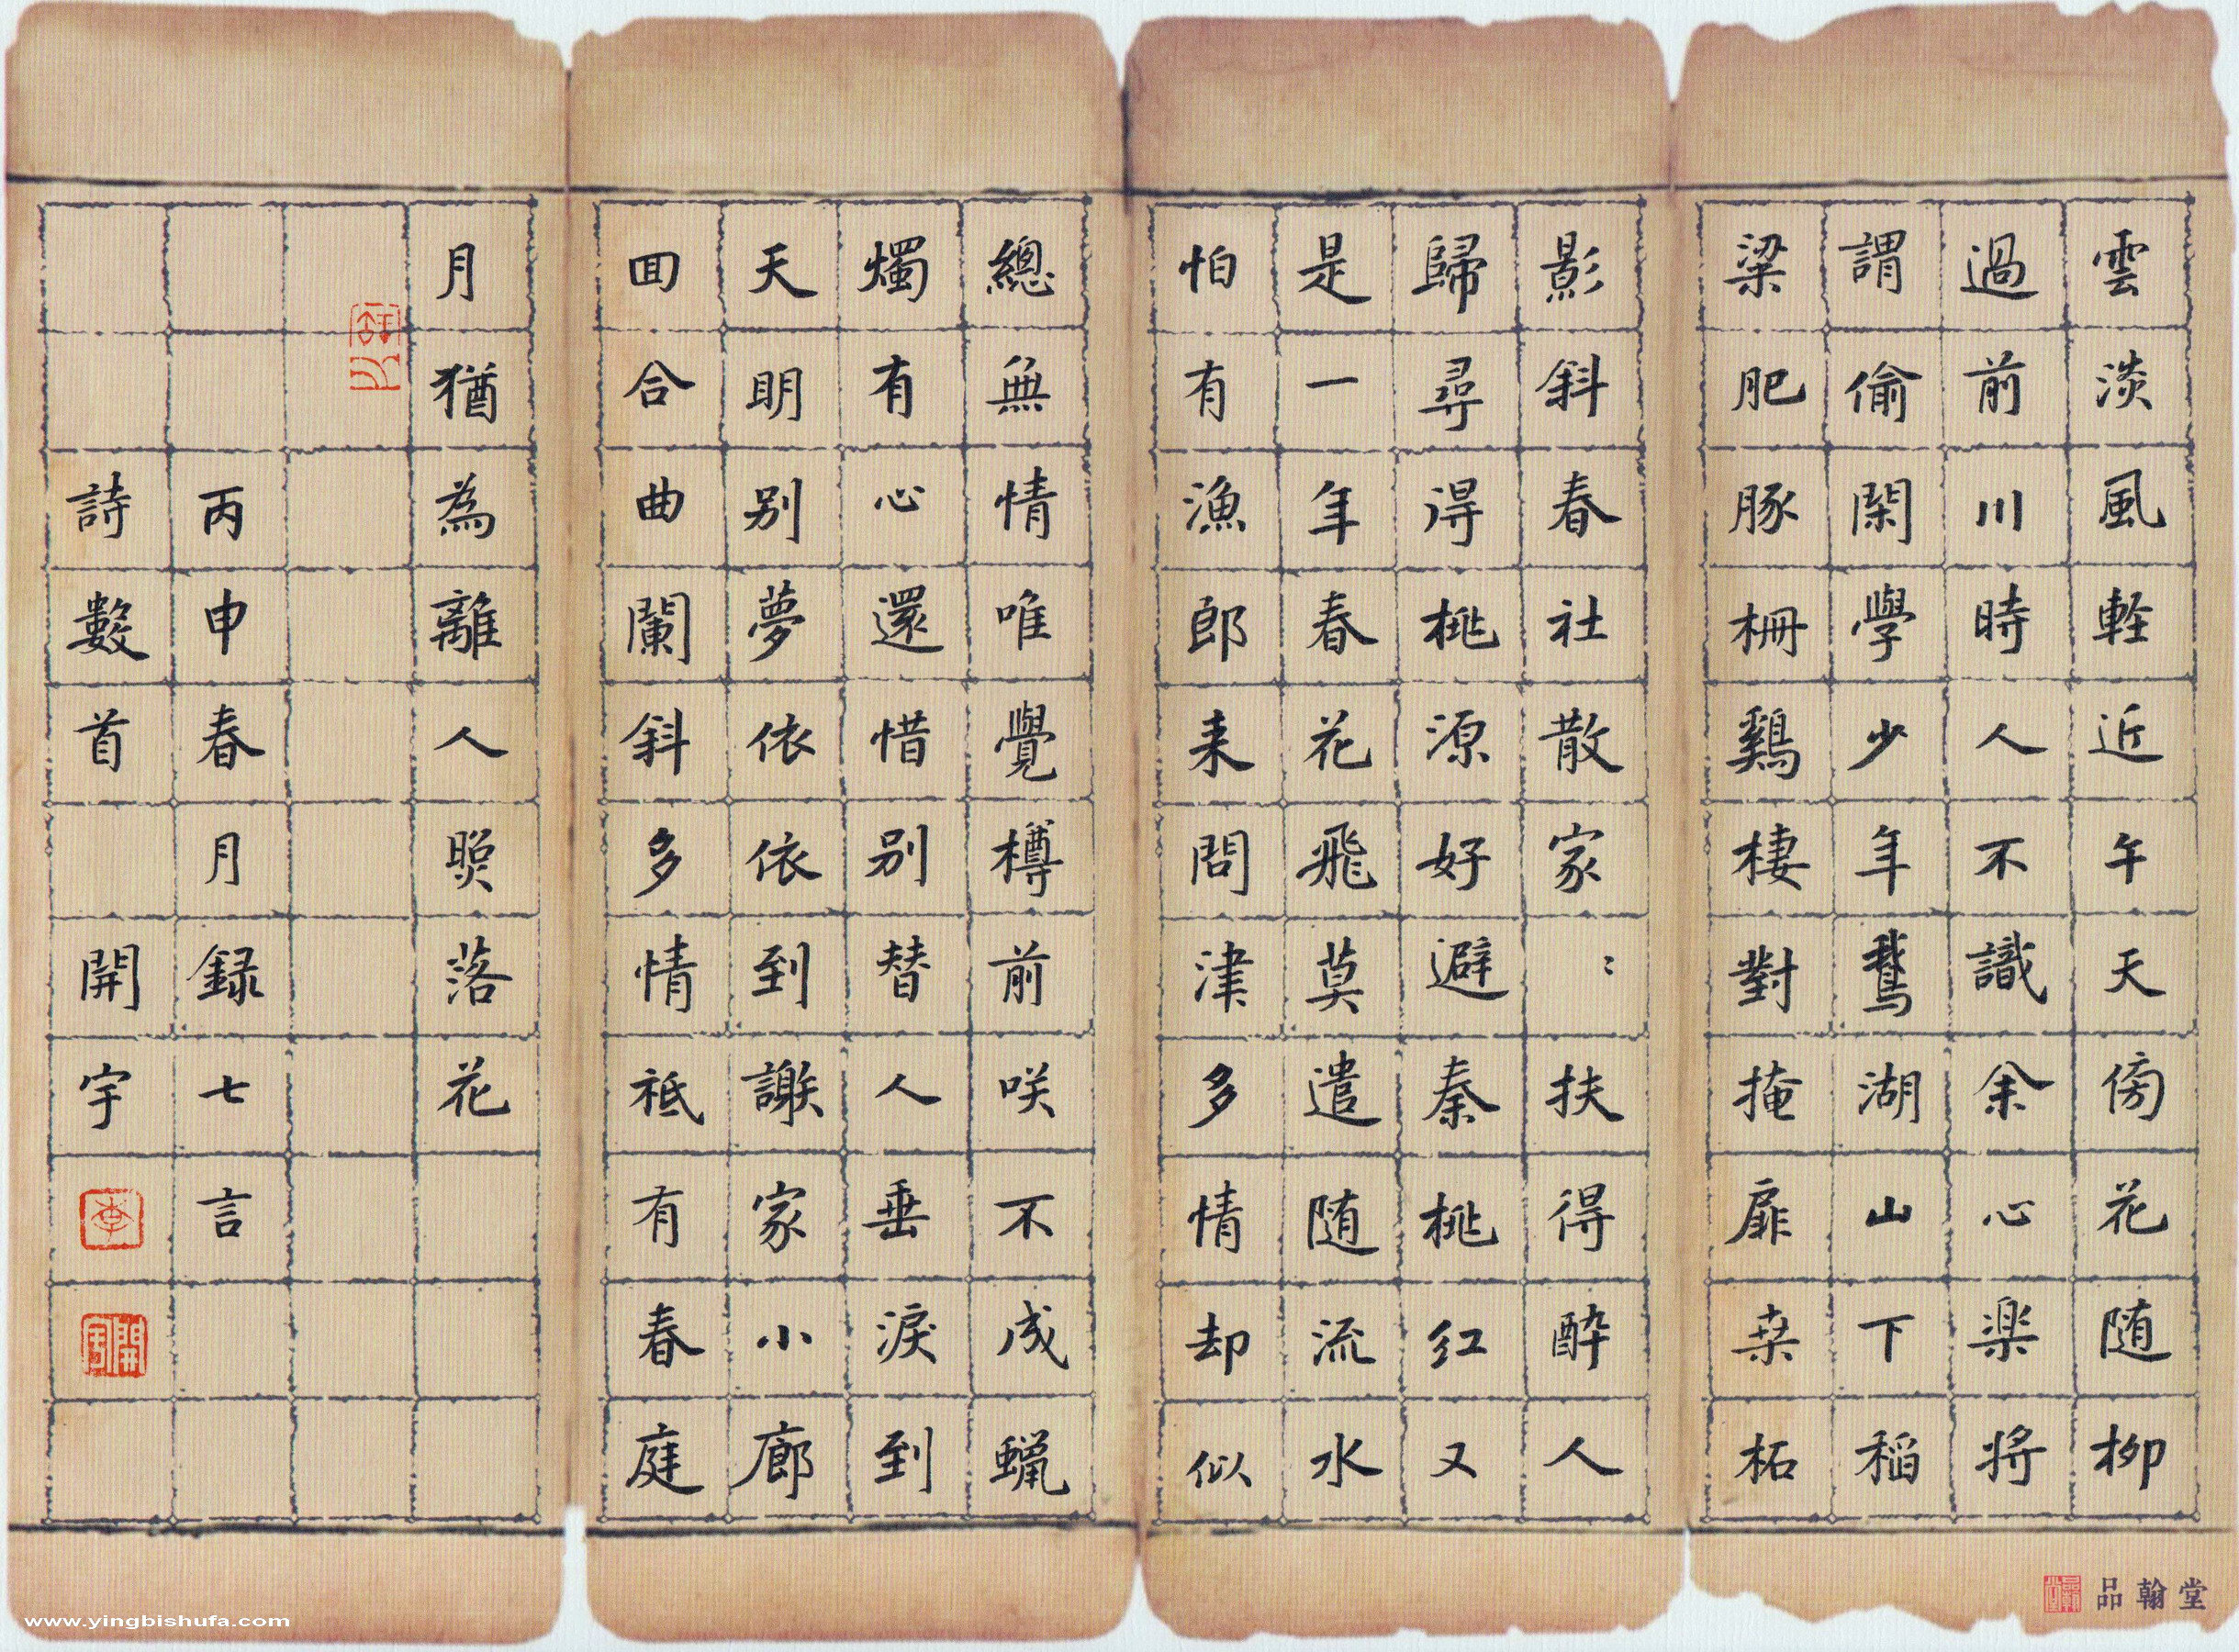 雲淡風輕近午天傍花随柳
過前川時人不識余心楽将
謂偷閑學少年鵞湖山下稻
梁肥豚柵鷄棲對掩扉桒柘
影斜春社散家〻扶得醉人
歸尋得桃源好避秦桃紅又
是一年春花飛莫遣随流水
怕有漁郎来問津多情却似
總無情唯覺樽前咲不成蝋
燭有心還惜別替人垂淚到
天明別夢依依到謝家小廊
回合曲闌斜多情祗有春庭
月猶為離人照落花
丙申春月録七言
詩數首 開宇
李
開宇
品翰堂
www.yingbishufa.com